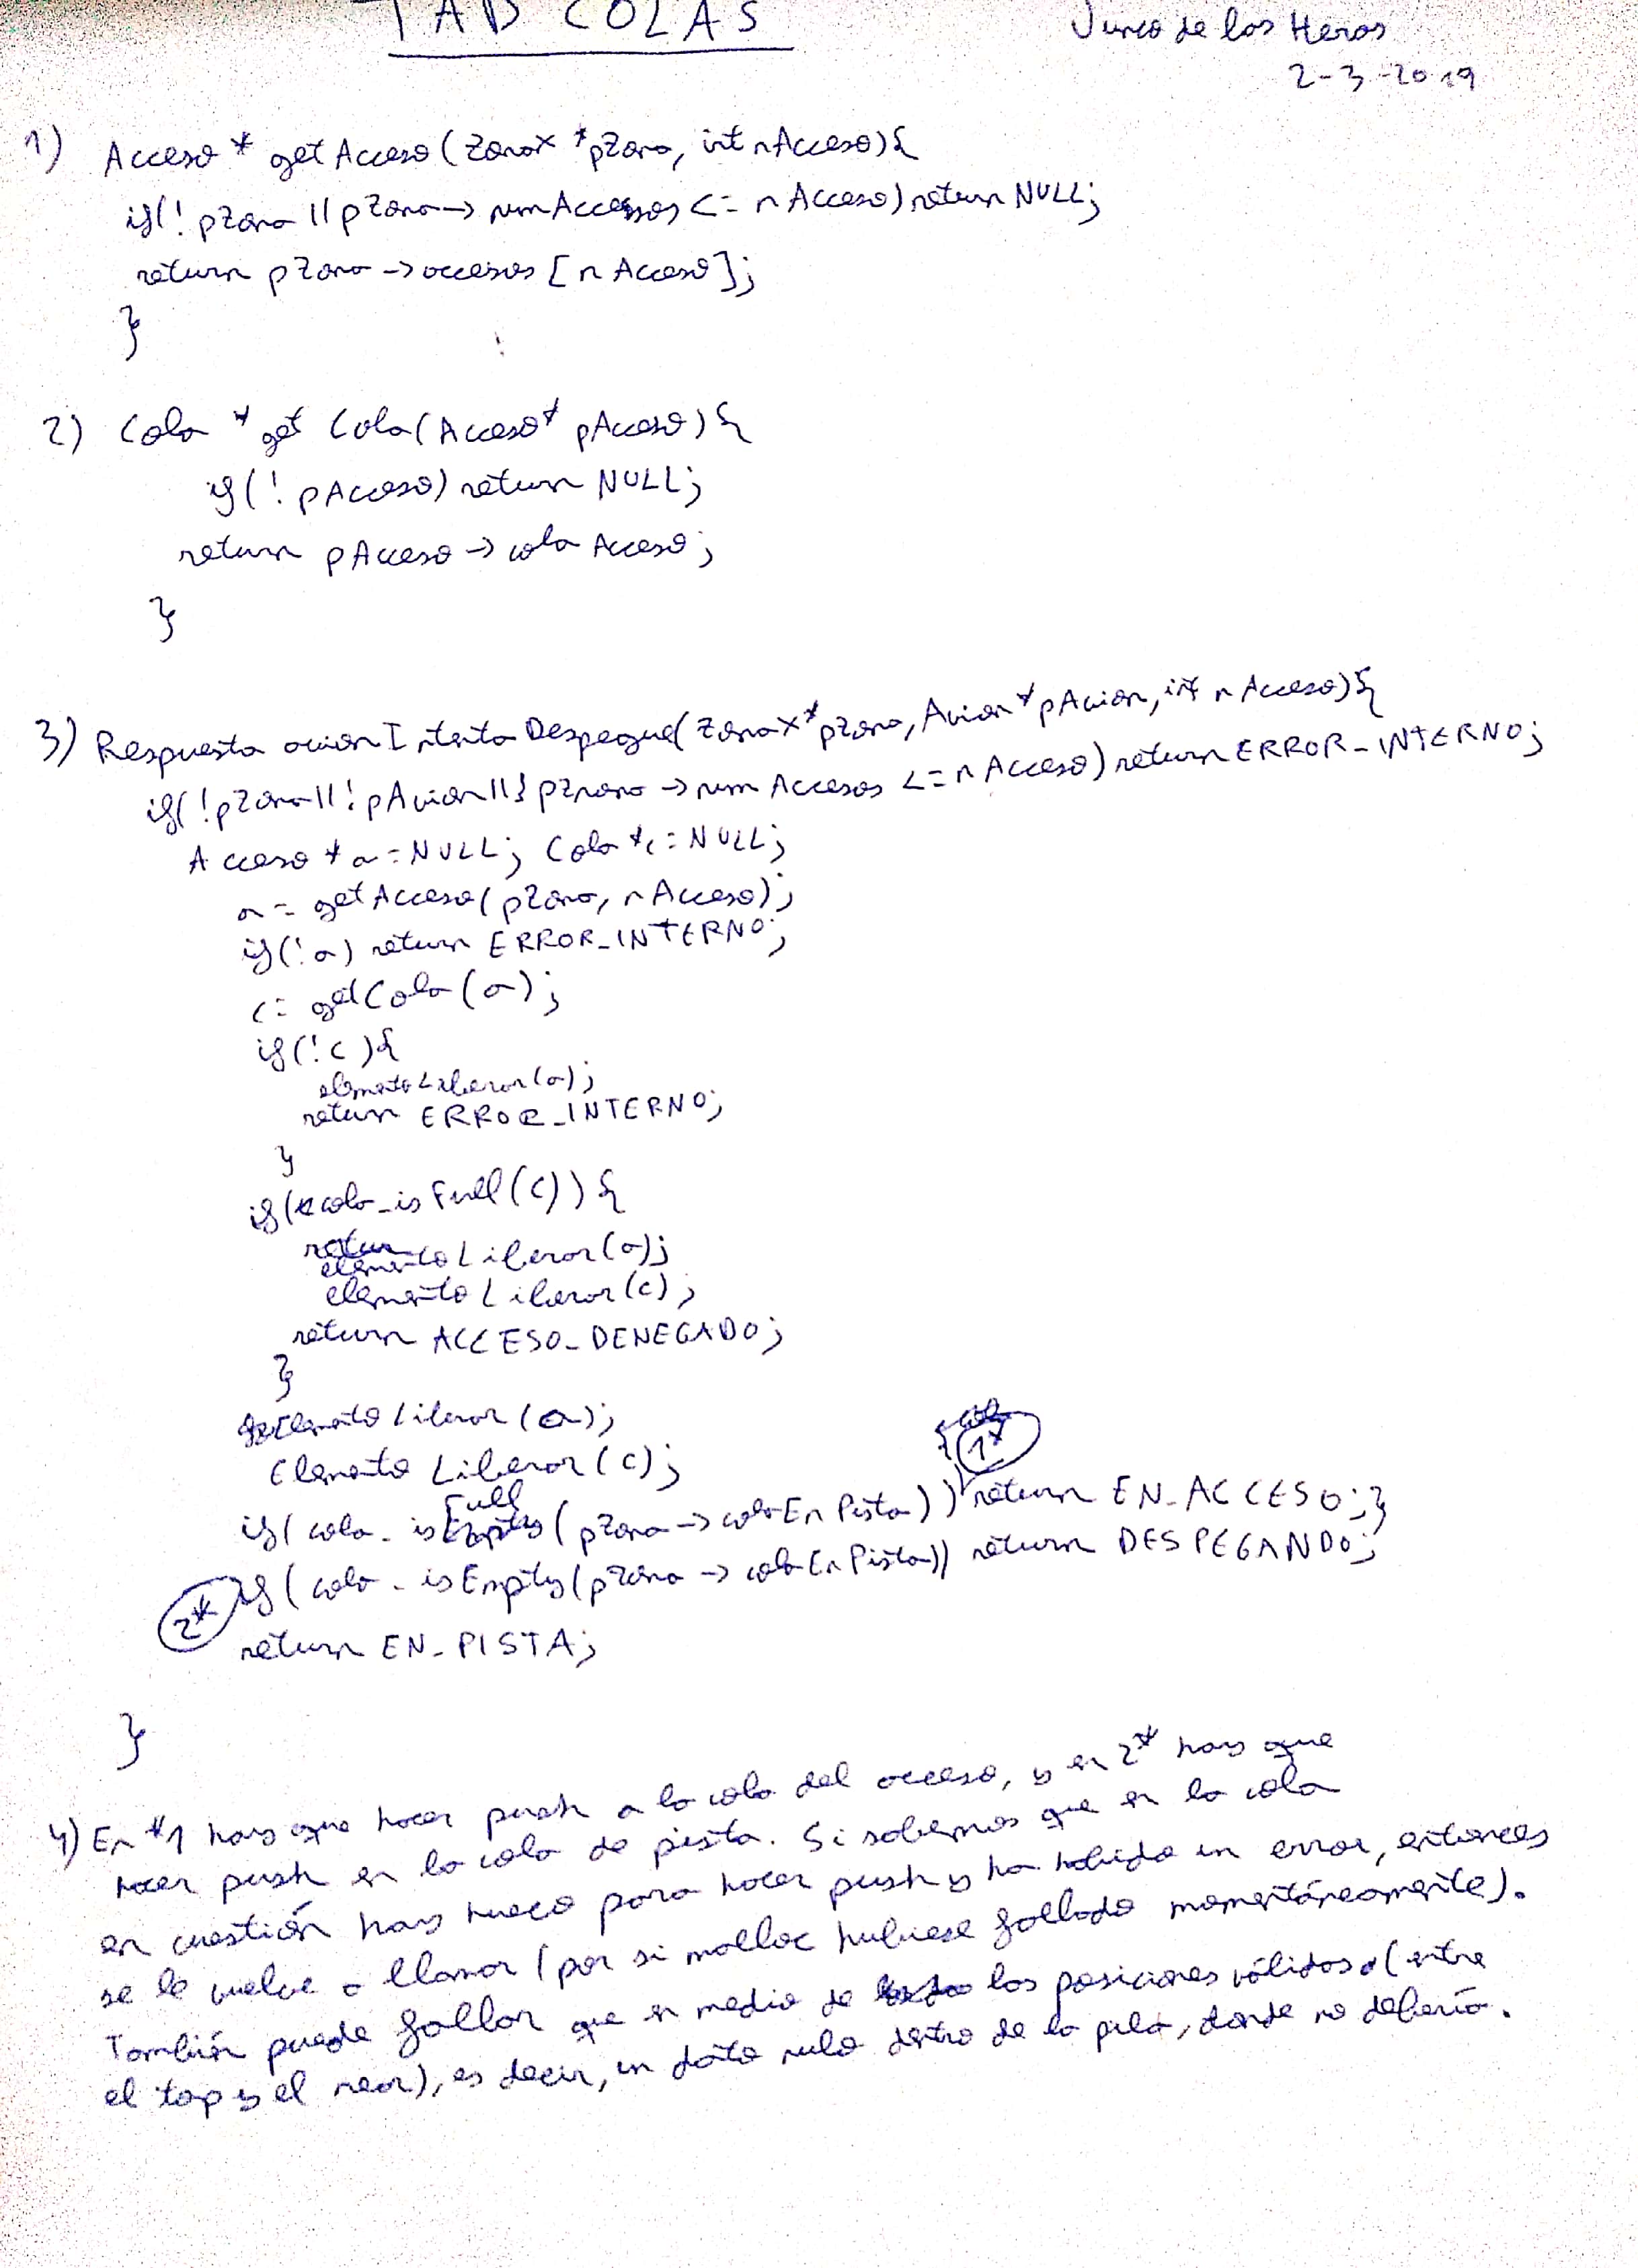 TAD COLAS
Junco de las Heras
2-3-2019
1) Acceso * getAcceso(ZonaX *pZona, int nAcceso){
if(!pZona || pZona->numAccesos <= nAcceso) return NULL;
return pZona->accesos[nAcceso];
}
2) Cola *getCola(Acceso* pAcceso){
if(!pAcceso) return NULL;
return pAcceso->colaAcceso;
}
3) Respuesta avionIntentaDespegue(ZonaX* pZona, Avion* pAvion, int nAcceso){
if(!pZona || !pAvion || pZona->numAccesos <= nAcceso) return ERROR_INTERNO;
Acceso *a = NULL; Cola *c = NULL;
a = getAcceso(pZona, nAcceso);
if(!a) return ERROR_INTERNO;
c = getCola(a);
if(!c){
elementoLiberar(a);
return ERROR_INTERNO;
}
if(cola_isFull(c)){
elementoLiberar(a);
elementoLiberar(c);
return ACCESO_DENEGADO;
}
ElementoLiberar(a);
ElementoLiberar(c);
if(cola_isFull(pZona->colaEnPista)){ 1* return EN_ACCESO;}
2* if(cola_isEmpty(pZona->colaEnPista)) return DESPEGANDO;
return EN_PISTA;
}
4) En *1 hay que hacer push a la cola del acceso, y en 2* hay que
hacer push en la cola de pista. Si sabemos que en la cola
en cuestión hay hueco para hacer push y ha habido un error, entonces
se le vuelve a llamar (por si malloc hubiese fallado momentáneamente).
También puede fallar que en medio de las posiciones válidas (entre
el top y el rear), es decir, un dato nulo dentro de la pila, donde no debería.